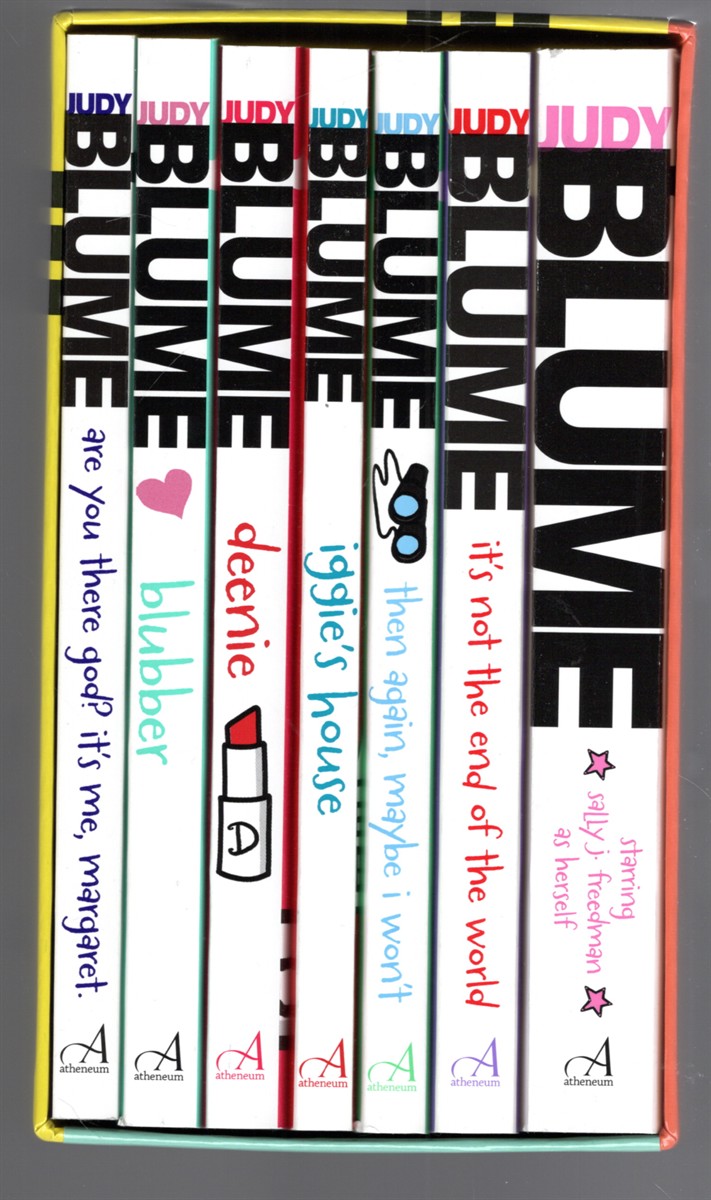 JUDY
BLUME
are you there god? it's me, margaret.
A
atheneum
JUDY
BLUME
blubber
A
atheneum
JUDY
BLUME
deenie
A
A
atheneum
JUDY
BLUME
iggie's house
A
atheneum
JUDY
BLUME
then again, maybe i won't
A
atheneum
JUDY
BLUME
it's not the end of the world
A
atheneum
JUDY
BLUME
starring
sally j. freedman
as herself
A
atheneum